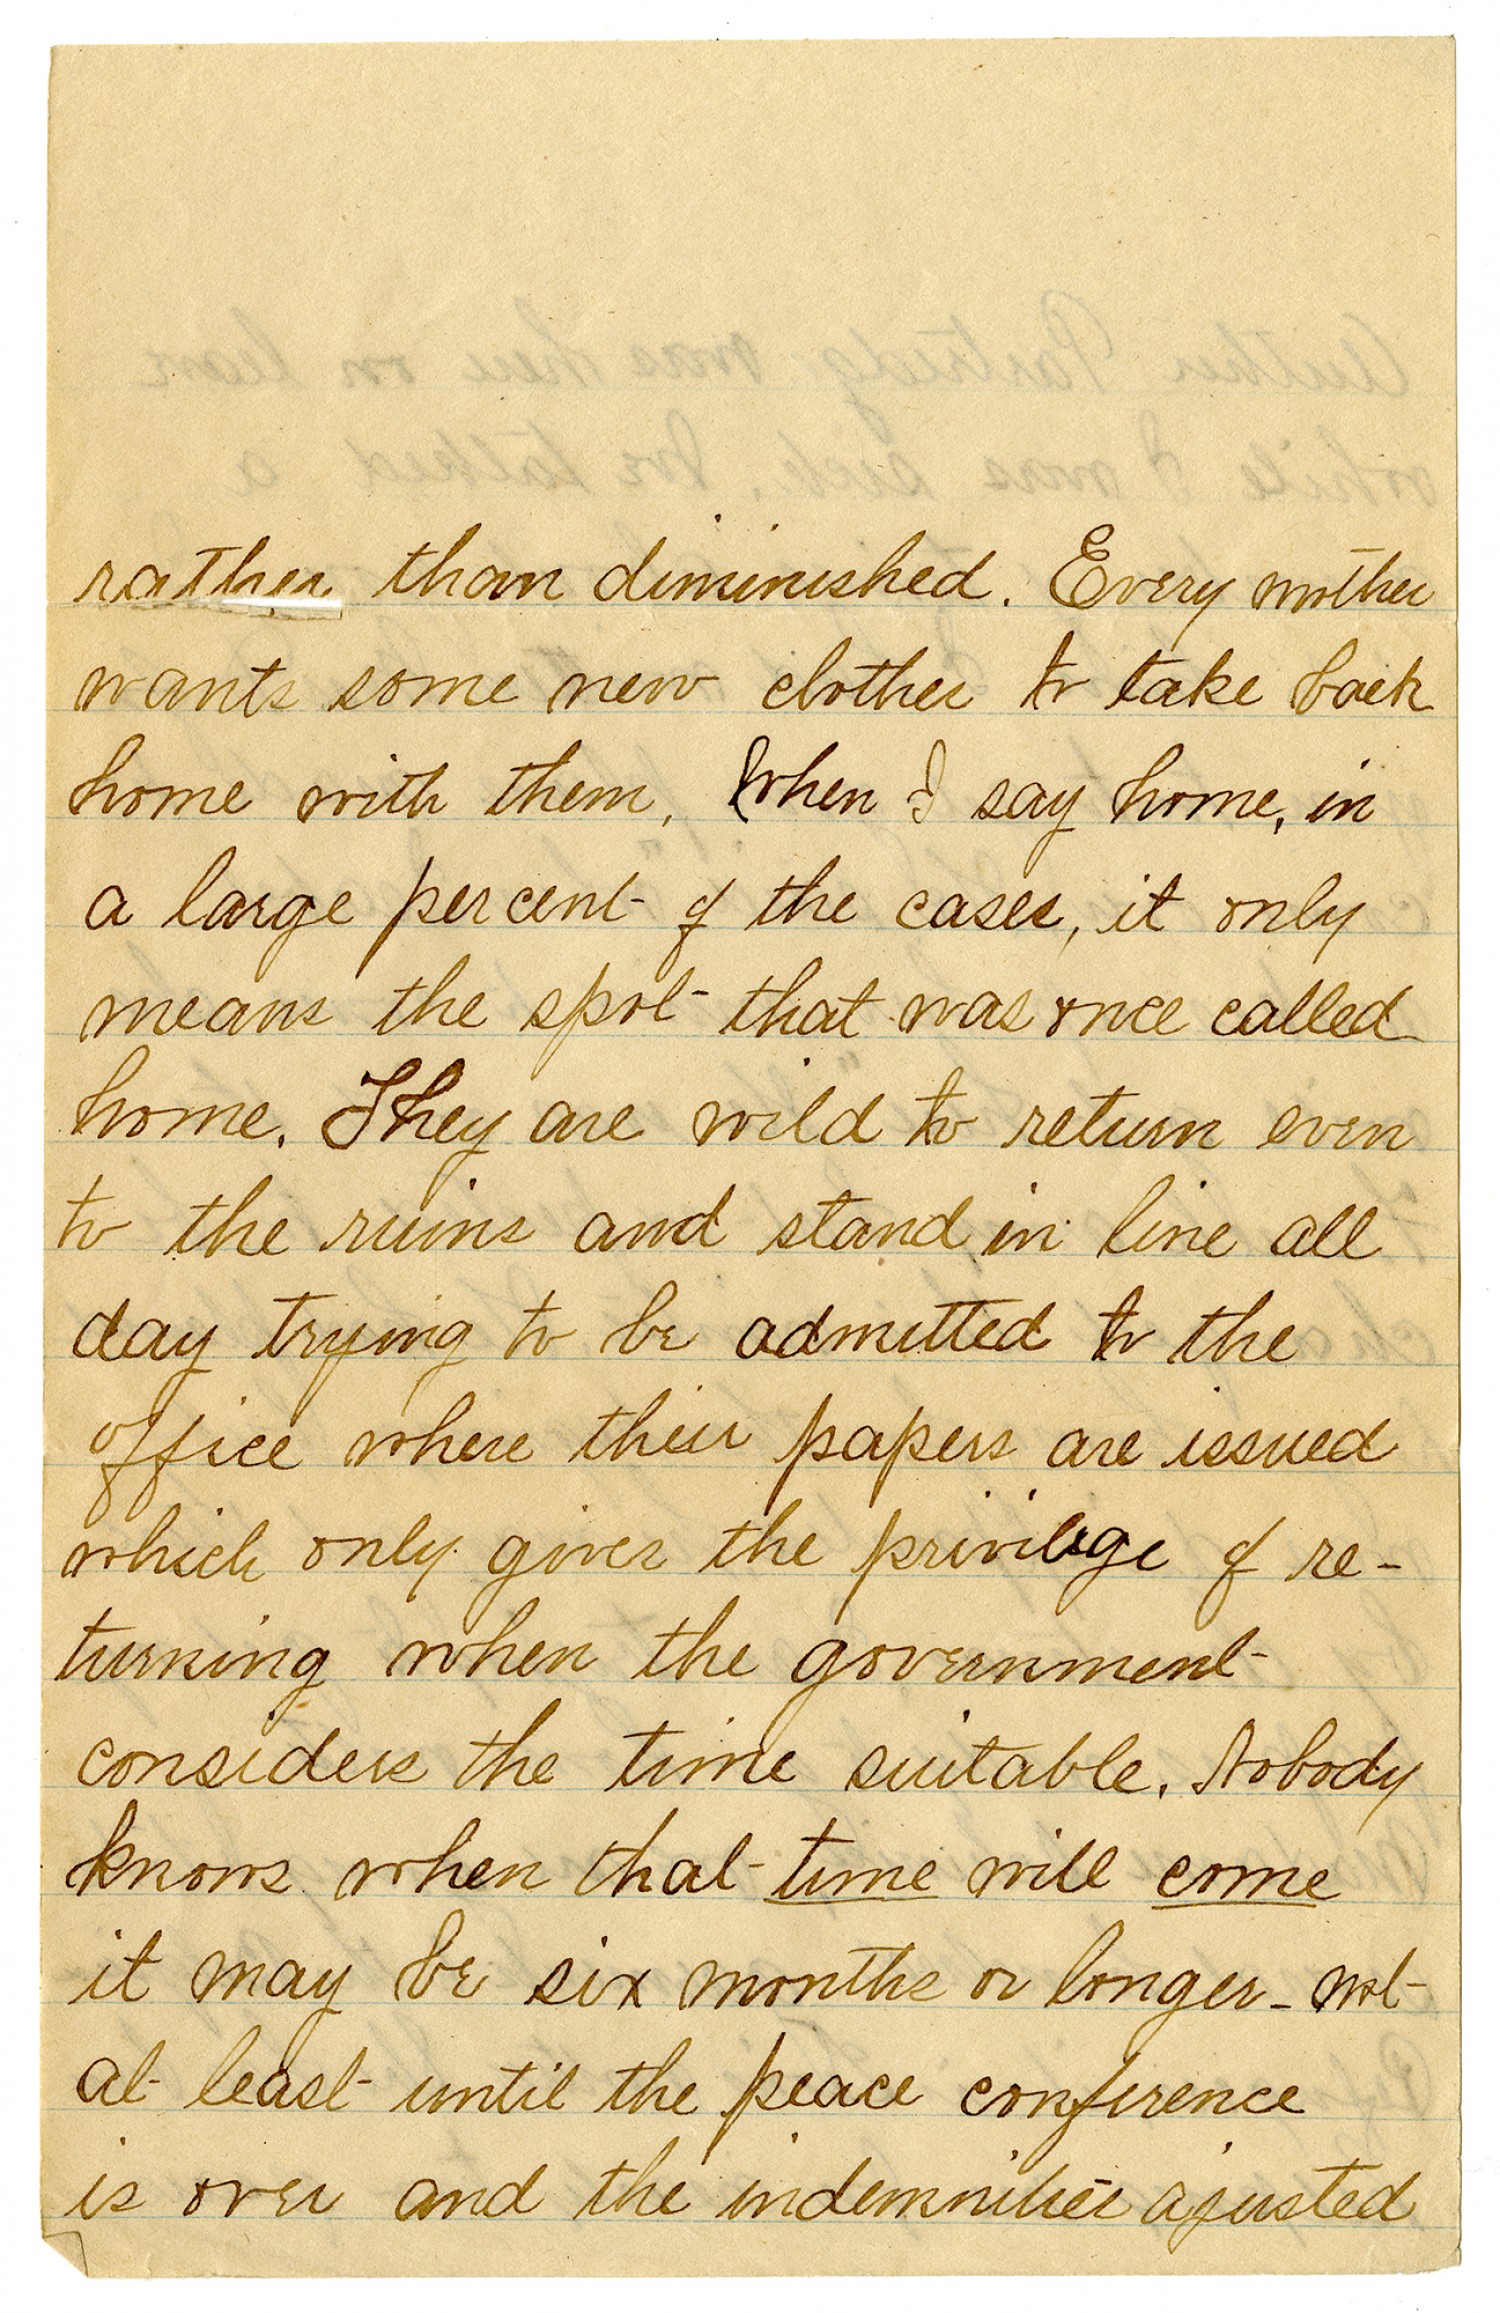 rather than diminished. Every mother
wants some new clothes to take back
home with them. When I say home, in
a large percent of the cases, it only
means the spot that was once called
home. They are wild to return even
to the ruins and stand in line all
day trying to be admitted to the
office where their papers are issued
which only gives the privilige of re-
turning when the government
considers the time suitable. Nobody
knows when that time will come
it may be six months or longer - not
at least until the peace conference
is over and the indemnities ajusted